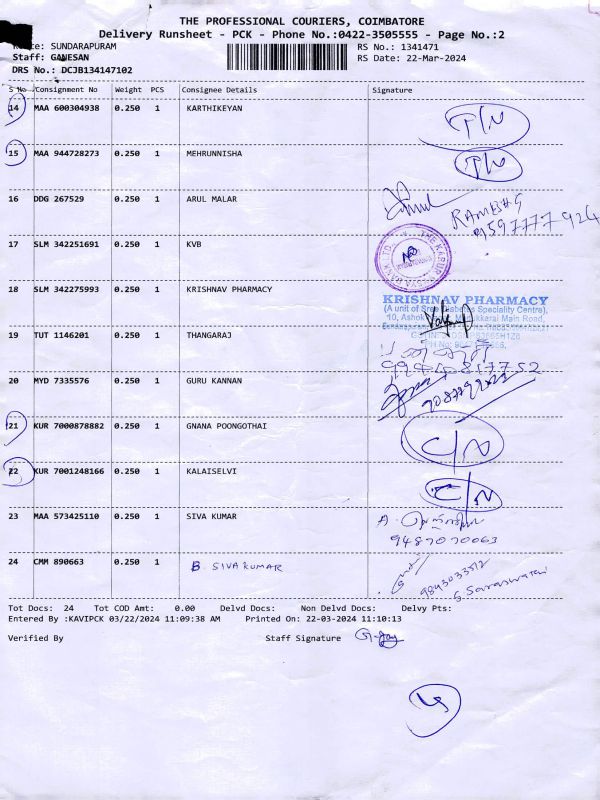 THE PROFESSIONAL COURIERS, COIMBATORE
Delivery Runsheet - PCK - Phone No.:0422-3505555 - Page No.:2
SUNDARAPURAM RS No.: 1341471
Staff: GANESAN RS Date: 22-Mar-2024
DRS No.: DCJB134147102
S No Consignment No Weight PCS Consignee Details Signature
14 MAA 600304938 0.250 1 KARTHIKEYAN
15 MAA 944728273 0.250 1 MEHRUNNISHA
16 DDG 267529 0.250 1 ARUL MALAR
17 SLM 342251691 0.250 1 KVB
18 SLM 342275993 0.250 1 KRISHNAV PHARMACY
KRISHNAV PHARMACY
(A unit of Sree Diabetes Speciality Centre),
Main Road,
19 TUT 1146201 0.250 1 THANGARAJ
20 MYD 7335576 0.250 1 GURU KANNAN
21 KUR 7000878882 0.250 1 GNANA POONGOTHAI C/N
22 KUR 7001248166 0.250 1 KALAISELVI C/N
23 MAA 573425110 0.250 1 SIVA KUMAR
9487070063
24 CMM 890663 0.250 1 B. SIVAKUMAR
9843033512
S. Saraswathi
Tot Docs: 24 Tot COD Amt: 0.00 Delvd Docs: Non Delvd Docs: Delvy Pts:
Entered By :KAVIPCK 03/22/2024 11:09:38 AM Printed On: 22-03-2024 11:10:13
Verified By Staff Signature